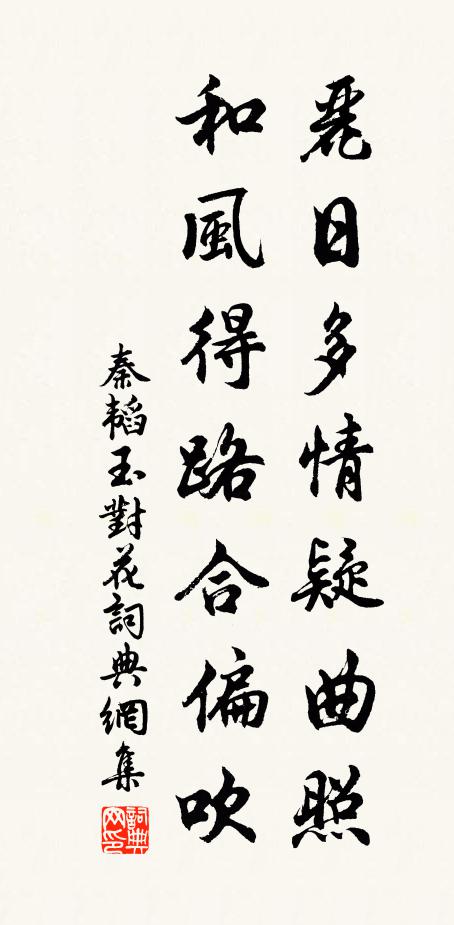 麗日多情疑曲照
和風得路合偏吹
秦韜玉對花詞典網集
詞典網印